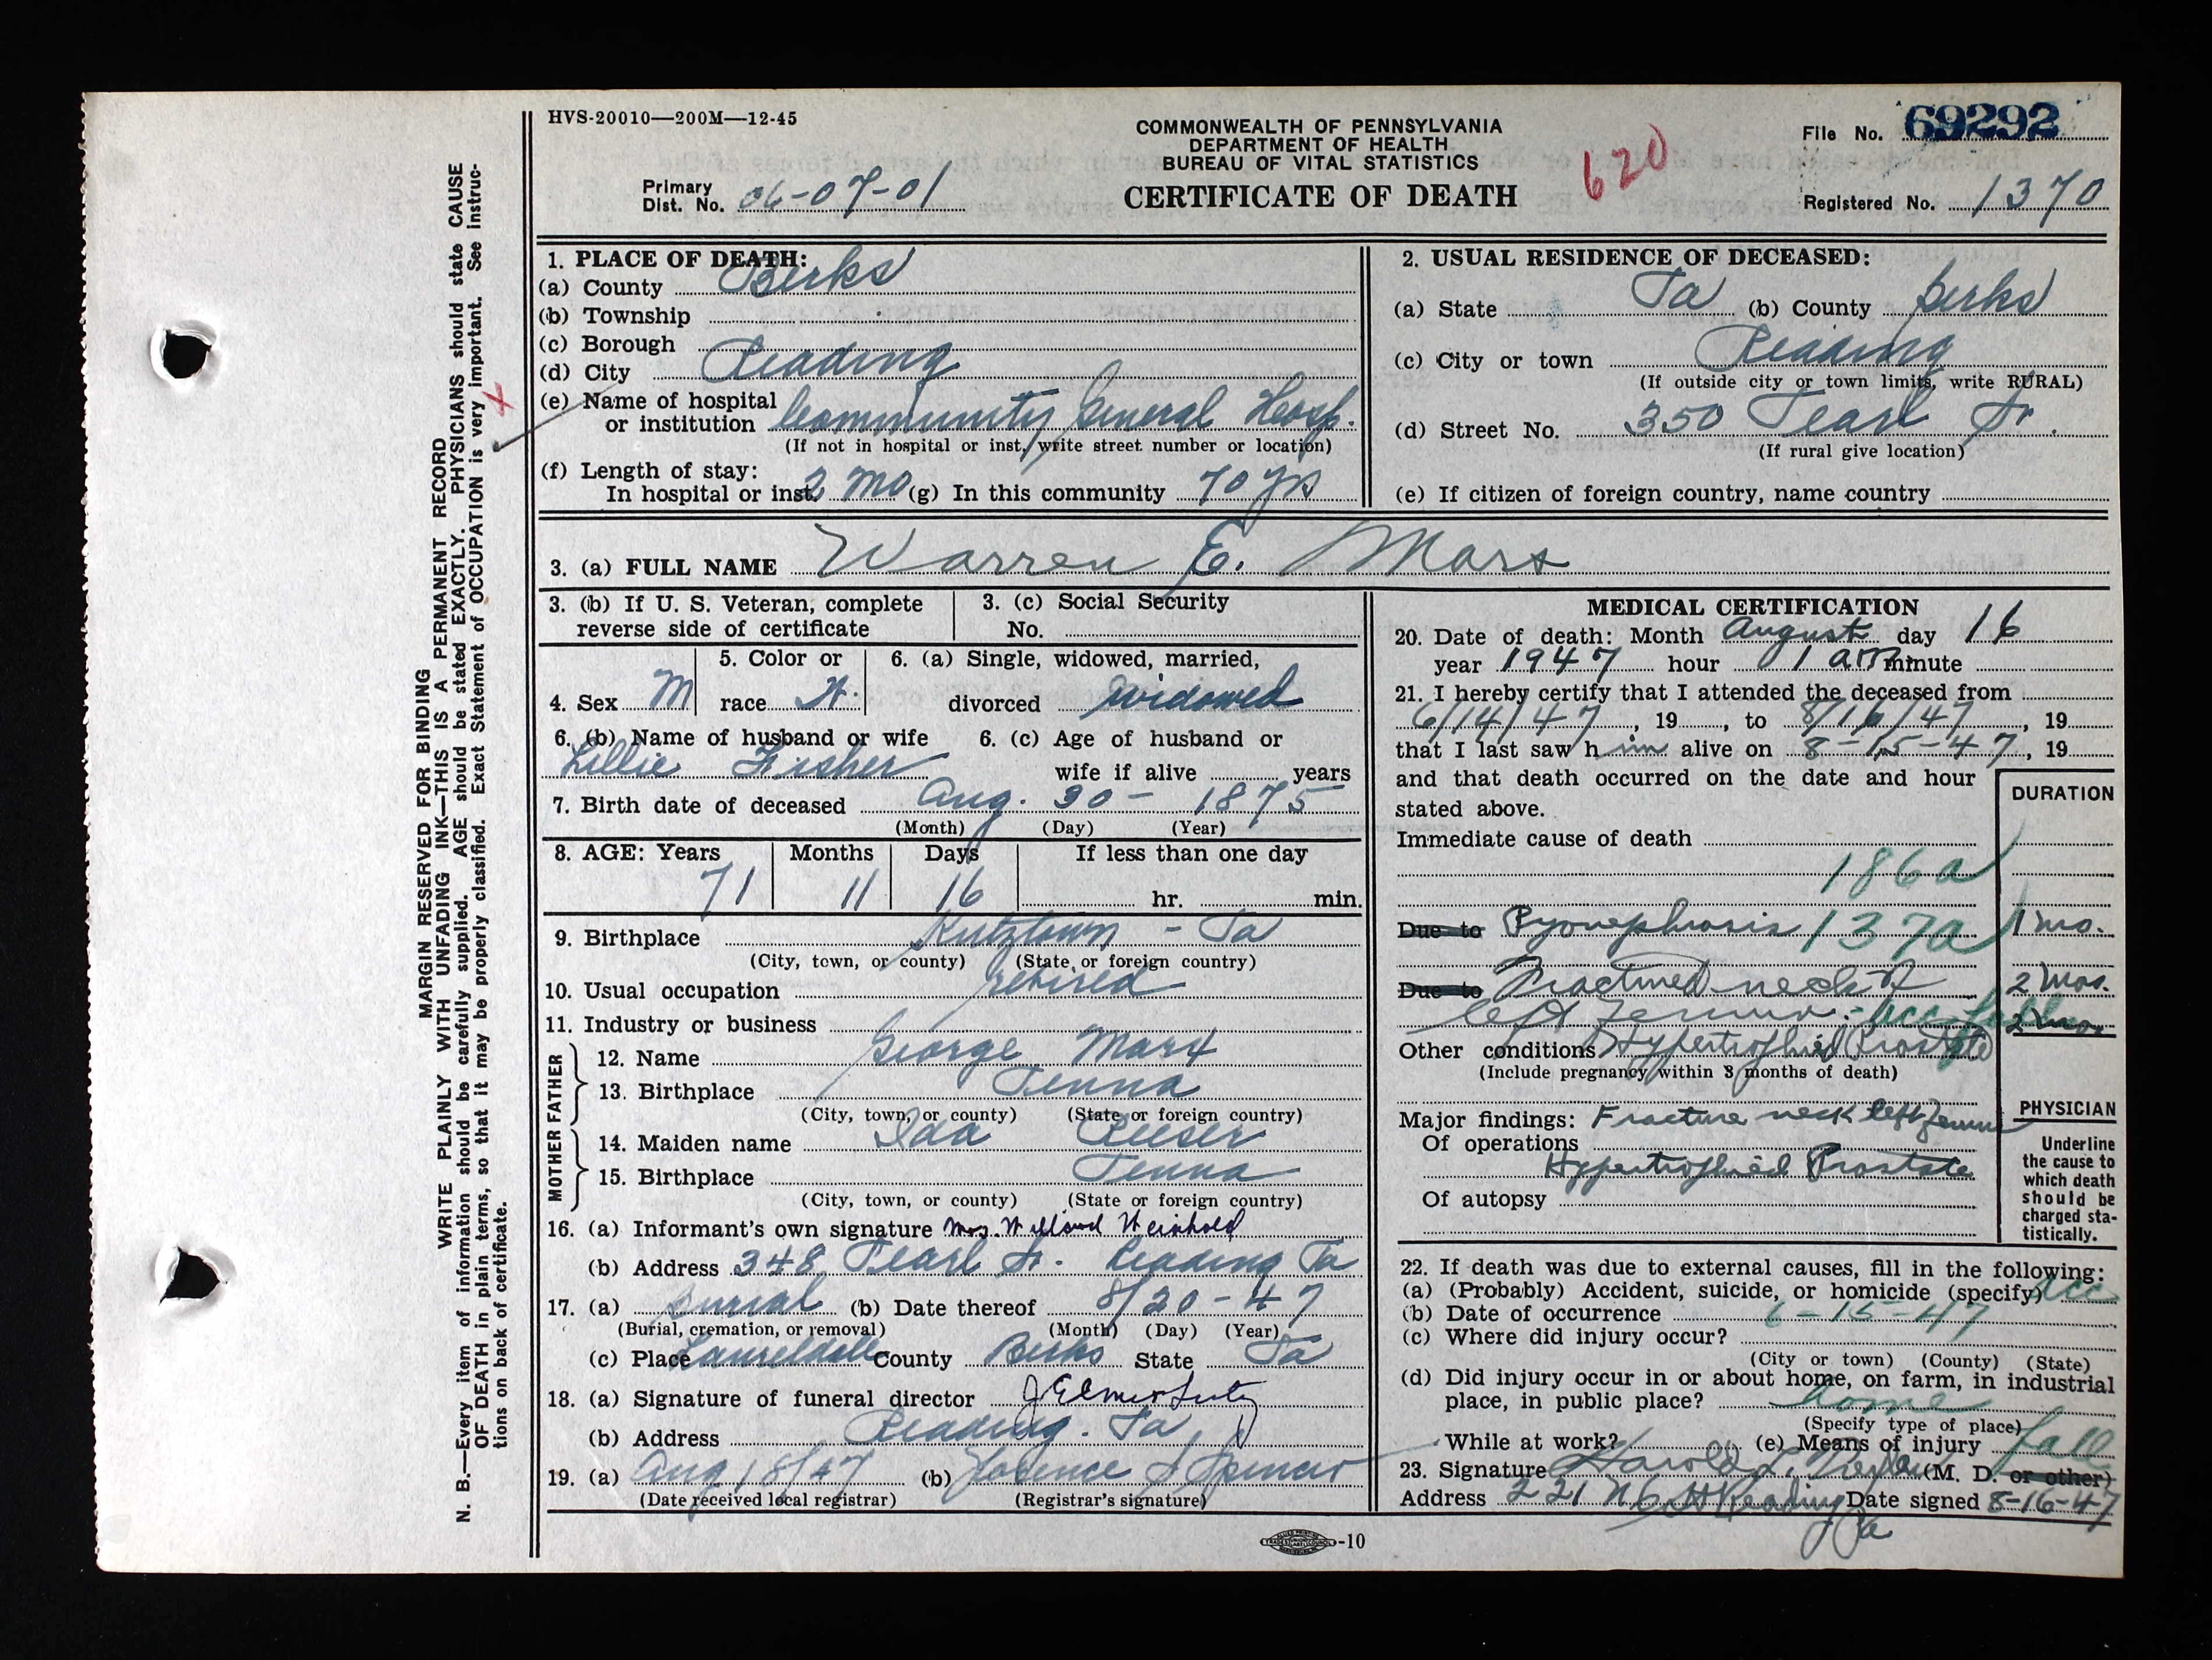 HVS-20010—200M—12-45
COMMONWEALTH OF PENNSYLVANIA
DEPARTMENT OF HEALTH
BUREAU OF VITAL STATISTICS
CERTIFICATE OF DEATH
620
File No. 69292
Primary Dist. No. 06-07-01
Registered No. 1370
MARGIN RESERVED FOR BINDING
WRITE PLAINLY WITH UNFADING INK—THIS IS A PERMANENT RECORD
N. B.—Every item of information should be carefully supplied. AGE should be stated EXACTLY. PHYSICIANS should state CAUSE
OF DEATH in plain terms, so that it may be properly classified. Exact Statement of OCCUPATION is very important. See instruc-
tions on back of certificate.
1. PLACE OF DEATH:
(a) County Berks
(b) Township
(c) Borough
(d) City Reading
(e) Name of hospital
or institution Community General Hosp.
(If not in hospital or inst. write street number or location)
(f) Length of stay:
In hospital or inst. 2 mo (g) In this community 70 yrs
2. USUAL RESIDENCE OF DECEASED:
(a) State Pa (b) County Berks
(c) City or town Reading
(If outside city or town limits, write RURAL)
(d) Street No. 350 Pearl St.
(If rural give location)
(e) If citizen of foreign country, name country
3. (a) FULL NAME Warren E. Marx
3. (b) If U. S. Veteran, complete
reverse side of certificate
3. (c) Social Security
No.
4. Sex M
5. Color or
race W.
6. (a) Single, widowed, married,
divorced widowed
6. (b) Name of husband or wife
Lillie Fisher
6. (c) Age of husband or
wife if alive years
7. Birth date of deceased Aug. 30 - 1875
(Month) (Day) (Year)
8. AGE: Years Months Days If less than one day
71 11 16 hr. min.
9. Birthplace Kutztown - Pa
(City, town, or county) (State or foreign country)
10. Usual occupation retired
11. Industry or business
FATHER
12. Name George Marx
13. Birthplace Penna
(City, town, or county) (State or foreign country)
MOTHER
14. Maiden name Ida Reeser
15. Birthplace Penna
(City, town, or county) (State or foreign country)
16. (a) Informant's own signature Mrs. Willard Weinhold
(b) Address 348 Pearl St. Reading Pa
17. (a) Burial (b) Date thereof 8/20-47
(Burial, cremation, or removal) (Month) (Day) (Year)
(c) Place Laureldale County Berks State Pa
18. (a) Signature of funeral director J Elmer Lutz
(b) Address Reading. Pa
19. (a) Aug 18/47 (b) Florence S Spencer
(Date received local registrar) (Registrar's signature)
MEDICAL CERTIFICATION
20. Date of death: Month August day 16
year 1947 hour 1 am minute
21. I hereby certify that I attended the deceased from
6/14/47, 19, to 8/16/47, 19
that I last saw him alive on 8-15-47, 19
and that death occurred on the date and hour
stated above.
DURATION
Immediate cause of death
186a
Due to Pyonephrosis 137a 1 mo.
Due to Fractured neck of 2 mos.
left femur. - acc fall 2 mo.
Other conditions Hypertrophied Prostate
(Include pregnancy within 3 months of death)
Major findings: Fracture neck left femur
Of operations
Hypertrophied Prostate
Of autopsy
PHYSICIAN
Underline
the cause to
which death
should be
charged sta-
tistically.
22. If death was due to external causes, fill in the following:
(a) (Probably) Accident, suicide, or homicide (specify) acc
(b) Date of occurrence 6-15-47
(c) Where did injury occur?
(City or town) (County) (State)
(d) Did injury occur in or about home, on farm, in industrial
place, in public place? home
(Specify type of place)
While at work? (e) Means of injury fall
23. Signature Harold (M. D. or other)
Address 221 N 6 St Reading Pa Date signed 8-16-47
-10